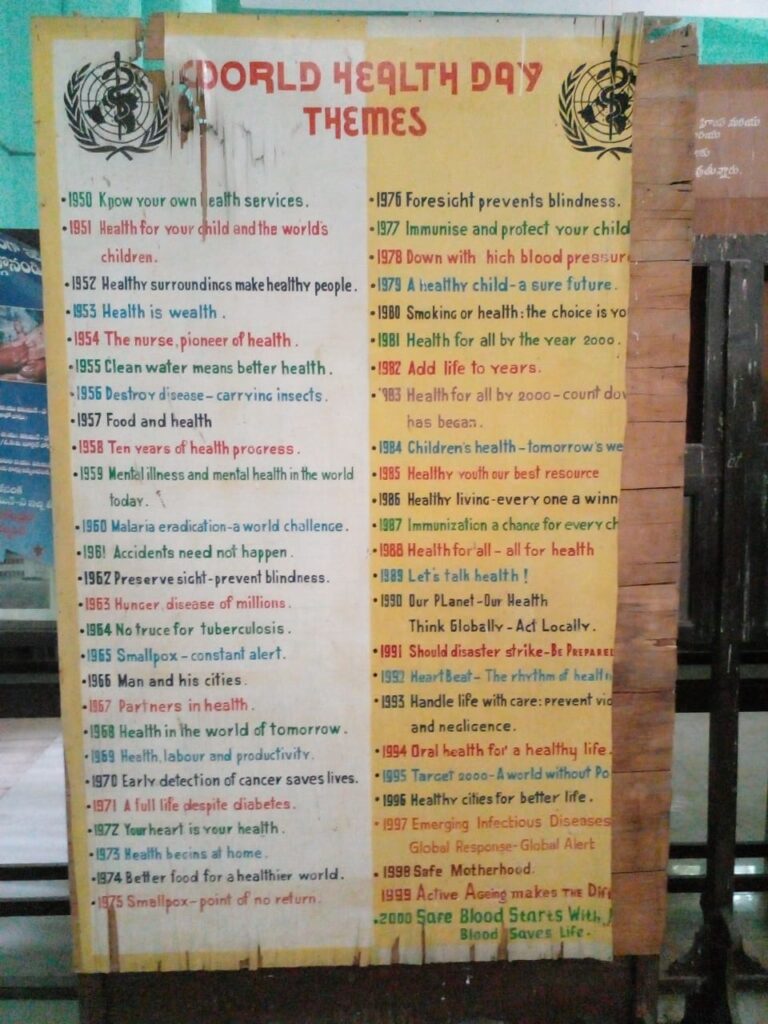 WORLD HEALTH DAY
THEMES
•1950 Know your own health services.
•1951 Health for your child and the world's
children.
•1952 Healthy surroundings make healthy people.
•1953 Health is wealth.
•1954 The nurse, pioneer of health.
•1955 Clean water means better health.
•1956 Destroy disease-carrying insects.
•1957 Food and health
•1958 Ten years of health progress.
•1959 Mental illness and mental health in the world
today.
•1960 Malaria eradication-a world challenge.
•1961 Accidents need not happen.
•1962 Preserve sight-prevent blindness.
•1963 Hunger, disease of millions.
•1964 No truce for tuberculosis.
•1965 Smallpox-constant alert.
•1966 Man and his cities.
•1967 Partners in health.
•1968 Health in the world of tomorrow.
•1969 Health, labour and productivity.
•1970 Early detection of cancer saves lives.
•1971 A full life despite diabetes.
•1972 Your heart is your health.
•1973 Health begins at home.
•1974 Better food for a healthier world.
•1975 Smallpox-point of no return.
•1976 Foresight prevents blindness.
•1977 Immunise and protect your child
•1978 Down with high blood pressur
•1979 A healthy child-a sure future.
•1980 Smoking or health: the choice is yo
•1981 Health for all by the year 2000.
•1982 Add life to years.
•1983 Health for all by 2000-count dow
has began.
•1984 Children's health-tomorrow's we
•1985 Healthy youth our best resource
•1986 Healthy living-every one a winn
•1987 Immunization a chance for every ch
•1988 Health for all - all for health
•1989 Let's talk health!
•1990 Our PLanet-Our Health
Think Globally-Act Locally.
•1991 Should disaster strike-Be Prepared
•1992 Heart Beat-The rhythm of health
•1993 Handle life with care: prevent vio
and negligence.
•1994 Oral health for a healthy life.
•1995 Target 2000-A world without Po
•1996 Healthy cities for better life.
•1997 Emerging Infectious Diseases
Global Response-Global Alert
•1998 Safe Motherhood.
1999 Active Ageing makes the Diff
•2000 Safe Blood Starts With
Blood Saves Life.